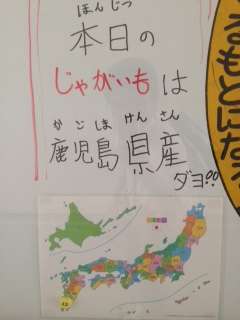 ほんじつ
本日の
じゃがいもは
かごしまけんさん
鹿児島県産
ダヨ!!
るもとにな